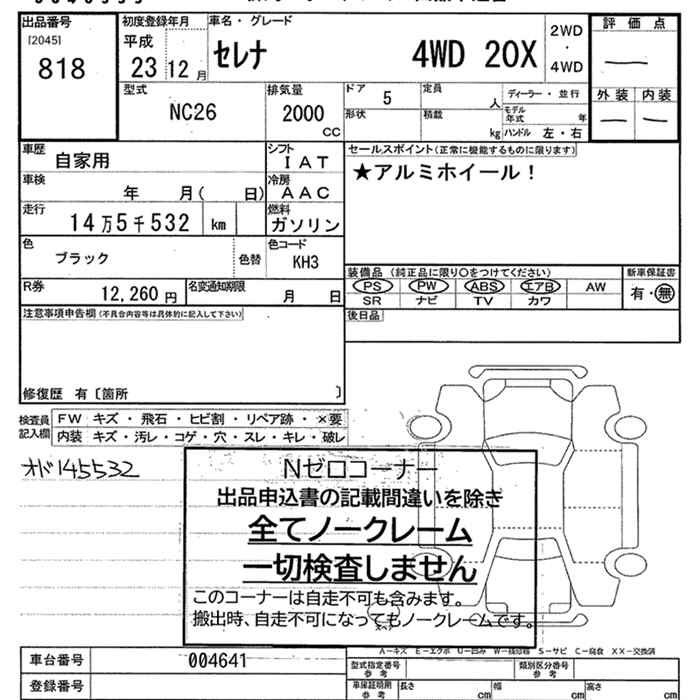 出品番号
[2045]
818
初度登録年月
平成
23 12 月
車名・グレード
セレナ 4WD 20X
2WD
・
4WD
評価点
外装 内装
型式
NC26
排気量
2000
CC
ドア
5
定員
人
ディーラー・並行
モデル年式 年
形状
積載
kg
ハンドル 左・右
車歴
自家用
シフト
IAT
セールスポイント(正常に機能するものに限ります)
★アルミホイール！
車検
年 月( 日)
冷房
AAC
走行
14万5千532 km
燃料
ガソリン
色
ブラック
色替
色コード
KH3
装備品 (純正品に限り○をつけてください)
新車保証書
PS PW ABS エアB AW
有・無
SR ナビ TV カワ
R券
12,260 円
名変通知期限
月 日
後日品
注意事項申告欄(不具合内容等は具体的に記入して下さい)
修復歴 有〔箇所 〕
検査員記入欄
FW キズ・飛石・ヒビ割・リペア跡・×要
内装 キズ・汚レ・コゲ・穴・スレ・キレ・破レ
オド145532
Nゼロコーナー
出品申込書の記載間違いを除き
全てノークレーム
一切検査しません
このコーナーは自走不可も含みます。
搬出時、自走不可になってもノークレームです。
A－キズ E－エクボ U－凹み W－補修跡 S－サビ C－腐食 XX－交換済
車台番号
004641
型式指定番号
参考
類別区分番号
参考
登録番号
車庫証明用
参考
長さ cm
幅 cm
高さ cm